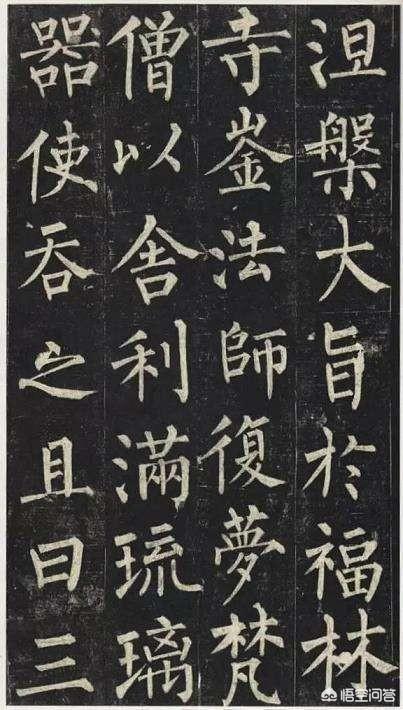 涅槃大旨於福林
寺崟法師復夢梵
僧以舍利滿琉璃
器使吞之且曰三
悟空问答